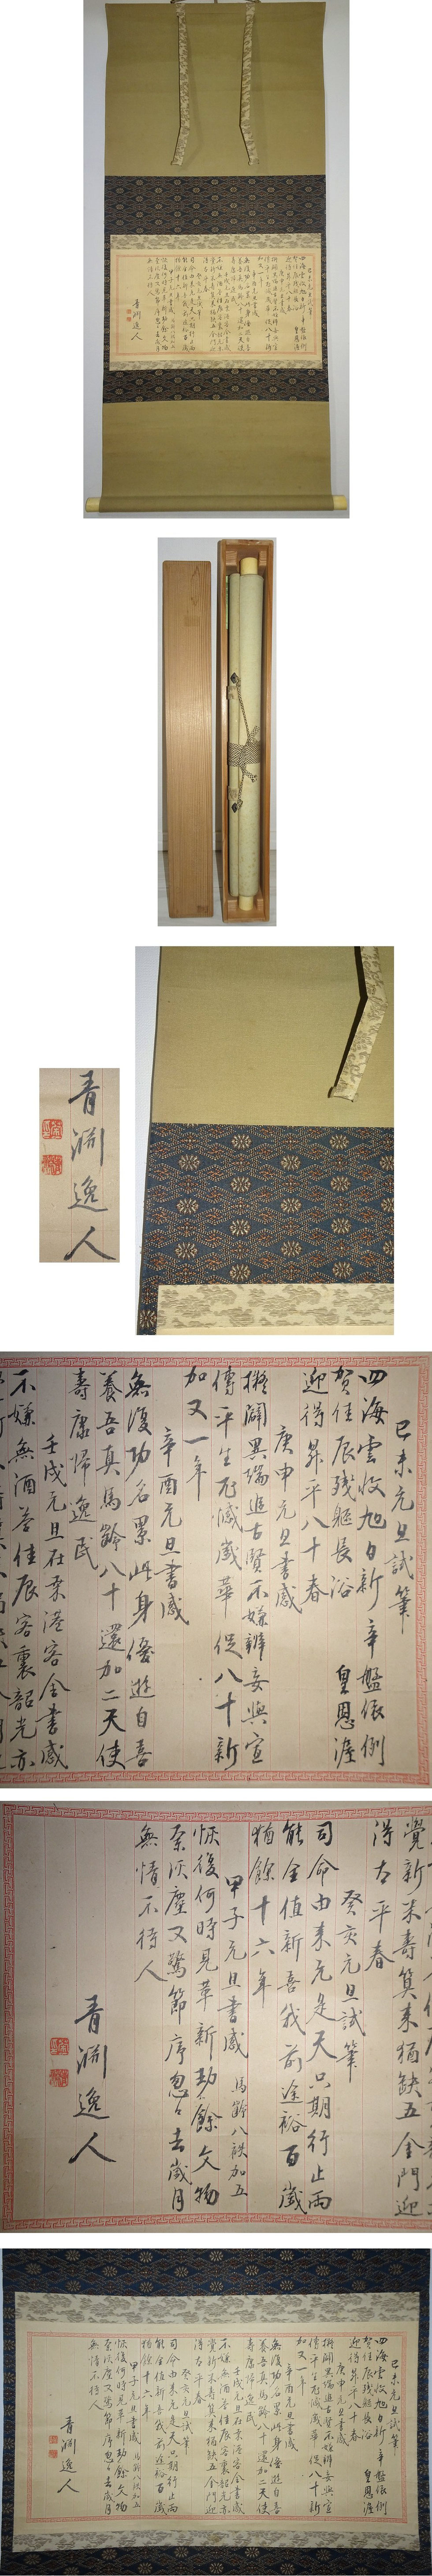 己未元旦試筆
四海雲收旭日新辛盤依例
賀佳辰残軀長浴　皇恩渥
迎得昇平八十春
庚申元旦書感
擬闢異端追古賢不嫌辨妄與宣
傳平生死滅歳華促八十新
加又一年
辛酉元旦書感
無復功名累此身優遊自喜
養吾真馬齢八十還加二天使
壽康帰逸民
壬戌元旦在桑港客舎書感
不嫌無酒答佳辰客裏韶光亦
覺新来壽算来猶缺五金門迎
得太平春
癸亥元旦試筆
司命由来元是天只期行止両
能全値新喜我前途裕百歳
猶餘十六年
甲子元旦書感　馬齢八秩加五
恢復何時見革新劫餘文物
委灰塵又驚節序忽々去歳月
無情不待人
青淵逸人